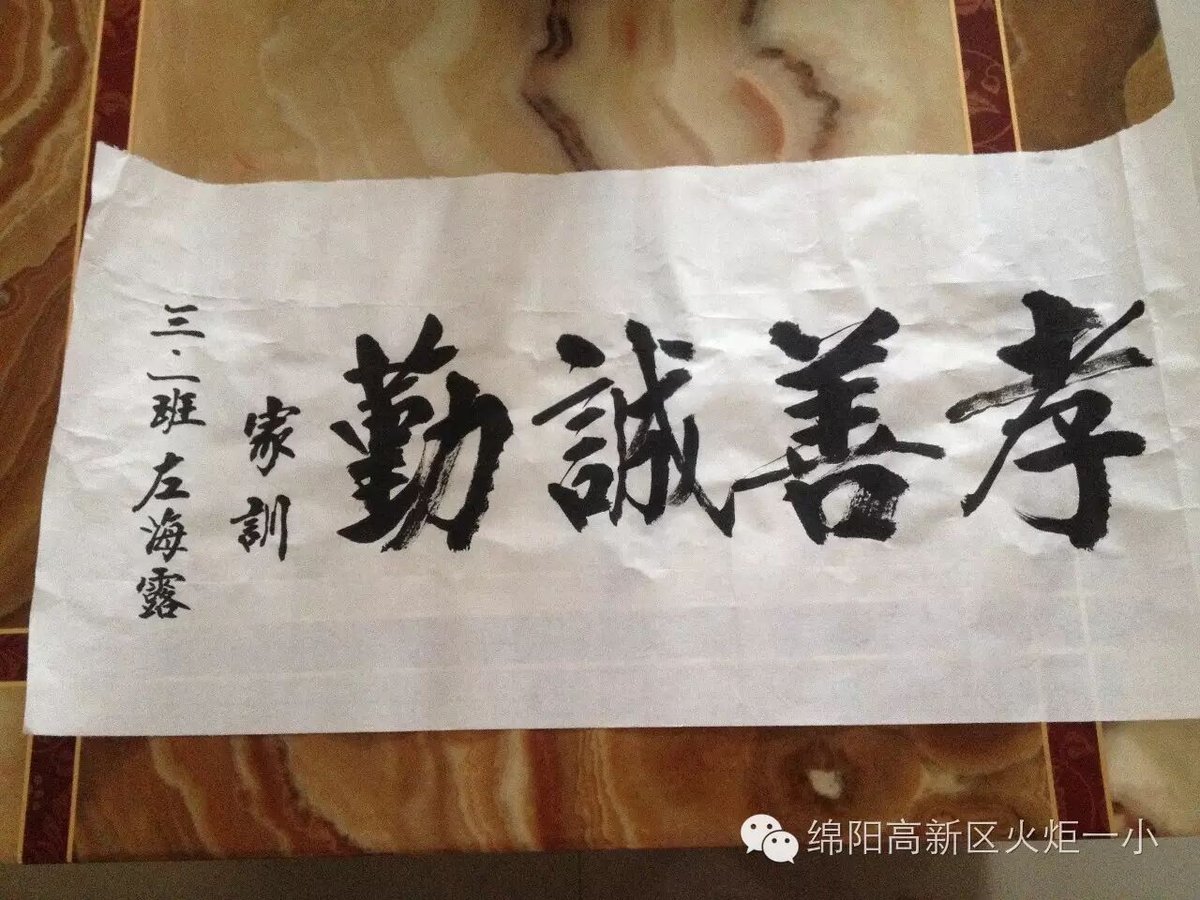 孝善誠勤
家訓
三.二班 左海露
绵阳高新区火炬一小